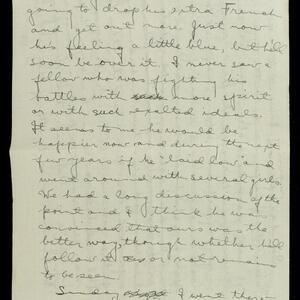 going to drop his extra French
and get out more. Just now
he's feeling a little blue, but he'll
soon be over it. I never saw a
fellow who was fighting his
battles with more spirit
or with such exalted ideals.
It seems to me he would be
happier now and during the next
few years if he "laid low" and
went around with several girls.
We had a long discussion of the
point and I think he was
convinced that ours was the
better way, though whether he'll
follow it or not remains
to be seen.
Sunday, I went there